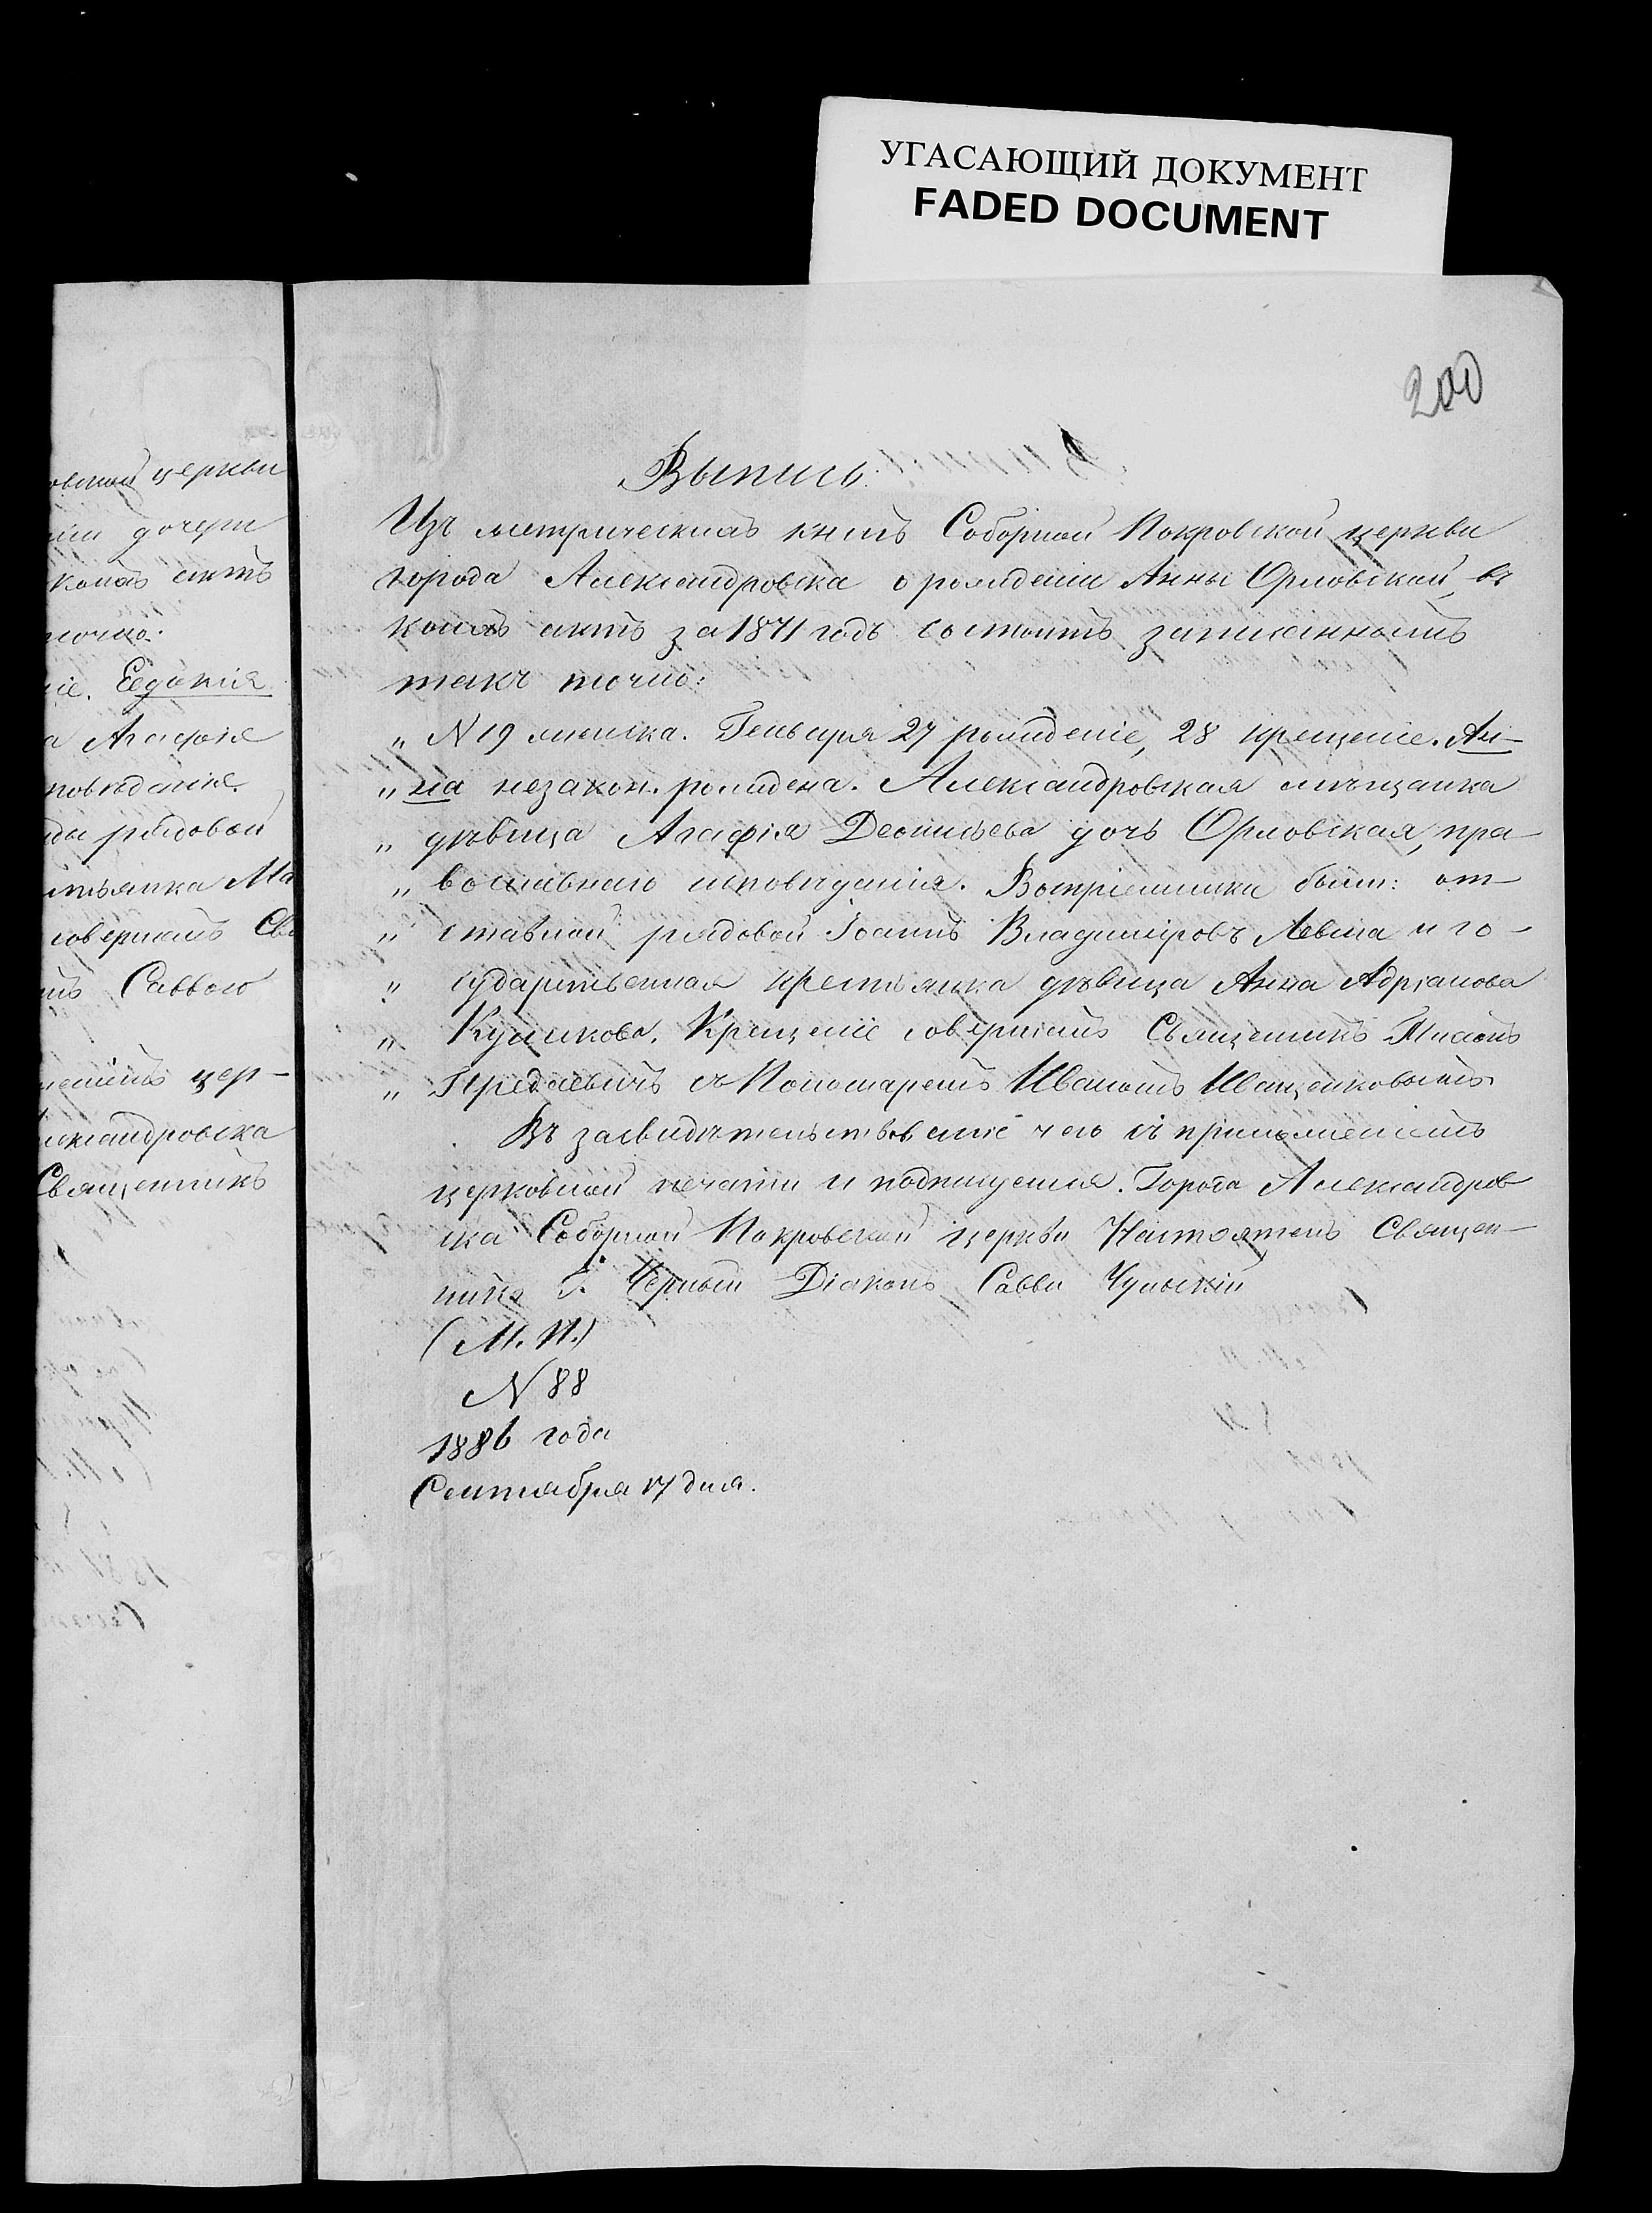 УГАСАЮЩИЙ ДОКУМЕНТ
FADED DOCUMENT
200
Выпись.
Изъ метрическихъ книгъ Соборной Покровской церкви
города Александровска о рожденіи Анны Орловской, въ
коихъ актъ за 1871 годъ состоитъ записаннымъ
такъ точно:
„ N 19 женска. Генваря 27 рожденіе, 28 крещеніе. Ан-
„ на незакон. рождена. Александровская мѣщанка
„ дѣвица Агафія Леонтьева дочь Орловская, пра-
„ вославнаго исповѣданія. Воспріемники были: от-
„ ставной рядовой Іоаннъ Владиміровъ Левша и го-
„ сударственная крестьянка дѣвица Анна Адріанова
„ Куликова. Крещеніе совершалъ Священникъ
„ съ Пономаремъ Иваномъ Иващенковымъ.
Въ засвидѣтельствованіе чего съ приложеніемъ
церковной печати и подпишемся. Города Александров
ска Соборной Покровской церкви Настоятель Священ-
никъ Г. Черный Діаконъ Савва
(М. П.)
N 88
1886 года
Сентября 17 дня.
овской церкви
ніи дочери
коихъ актъ
точно:
іе. Евдокія
а Агафія
повѣданія.
ды рядовой
стьянка Ма
совершалъ Св
мъ Саввою
женіемъ цер-
лександровска
Священникъ